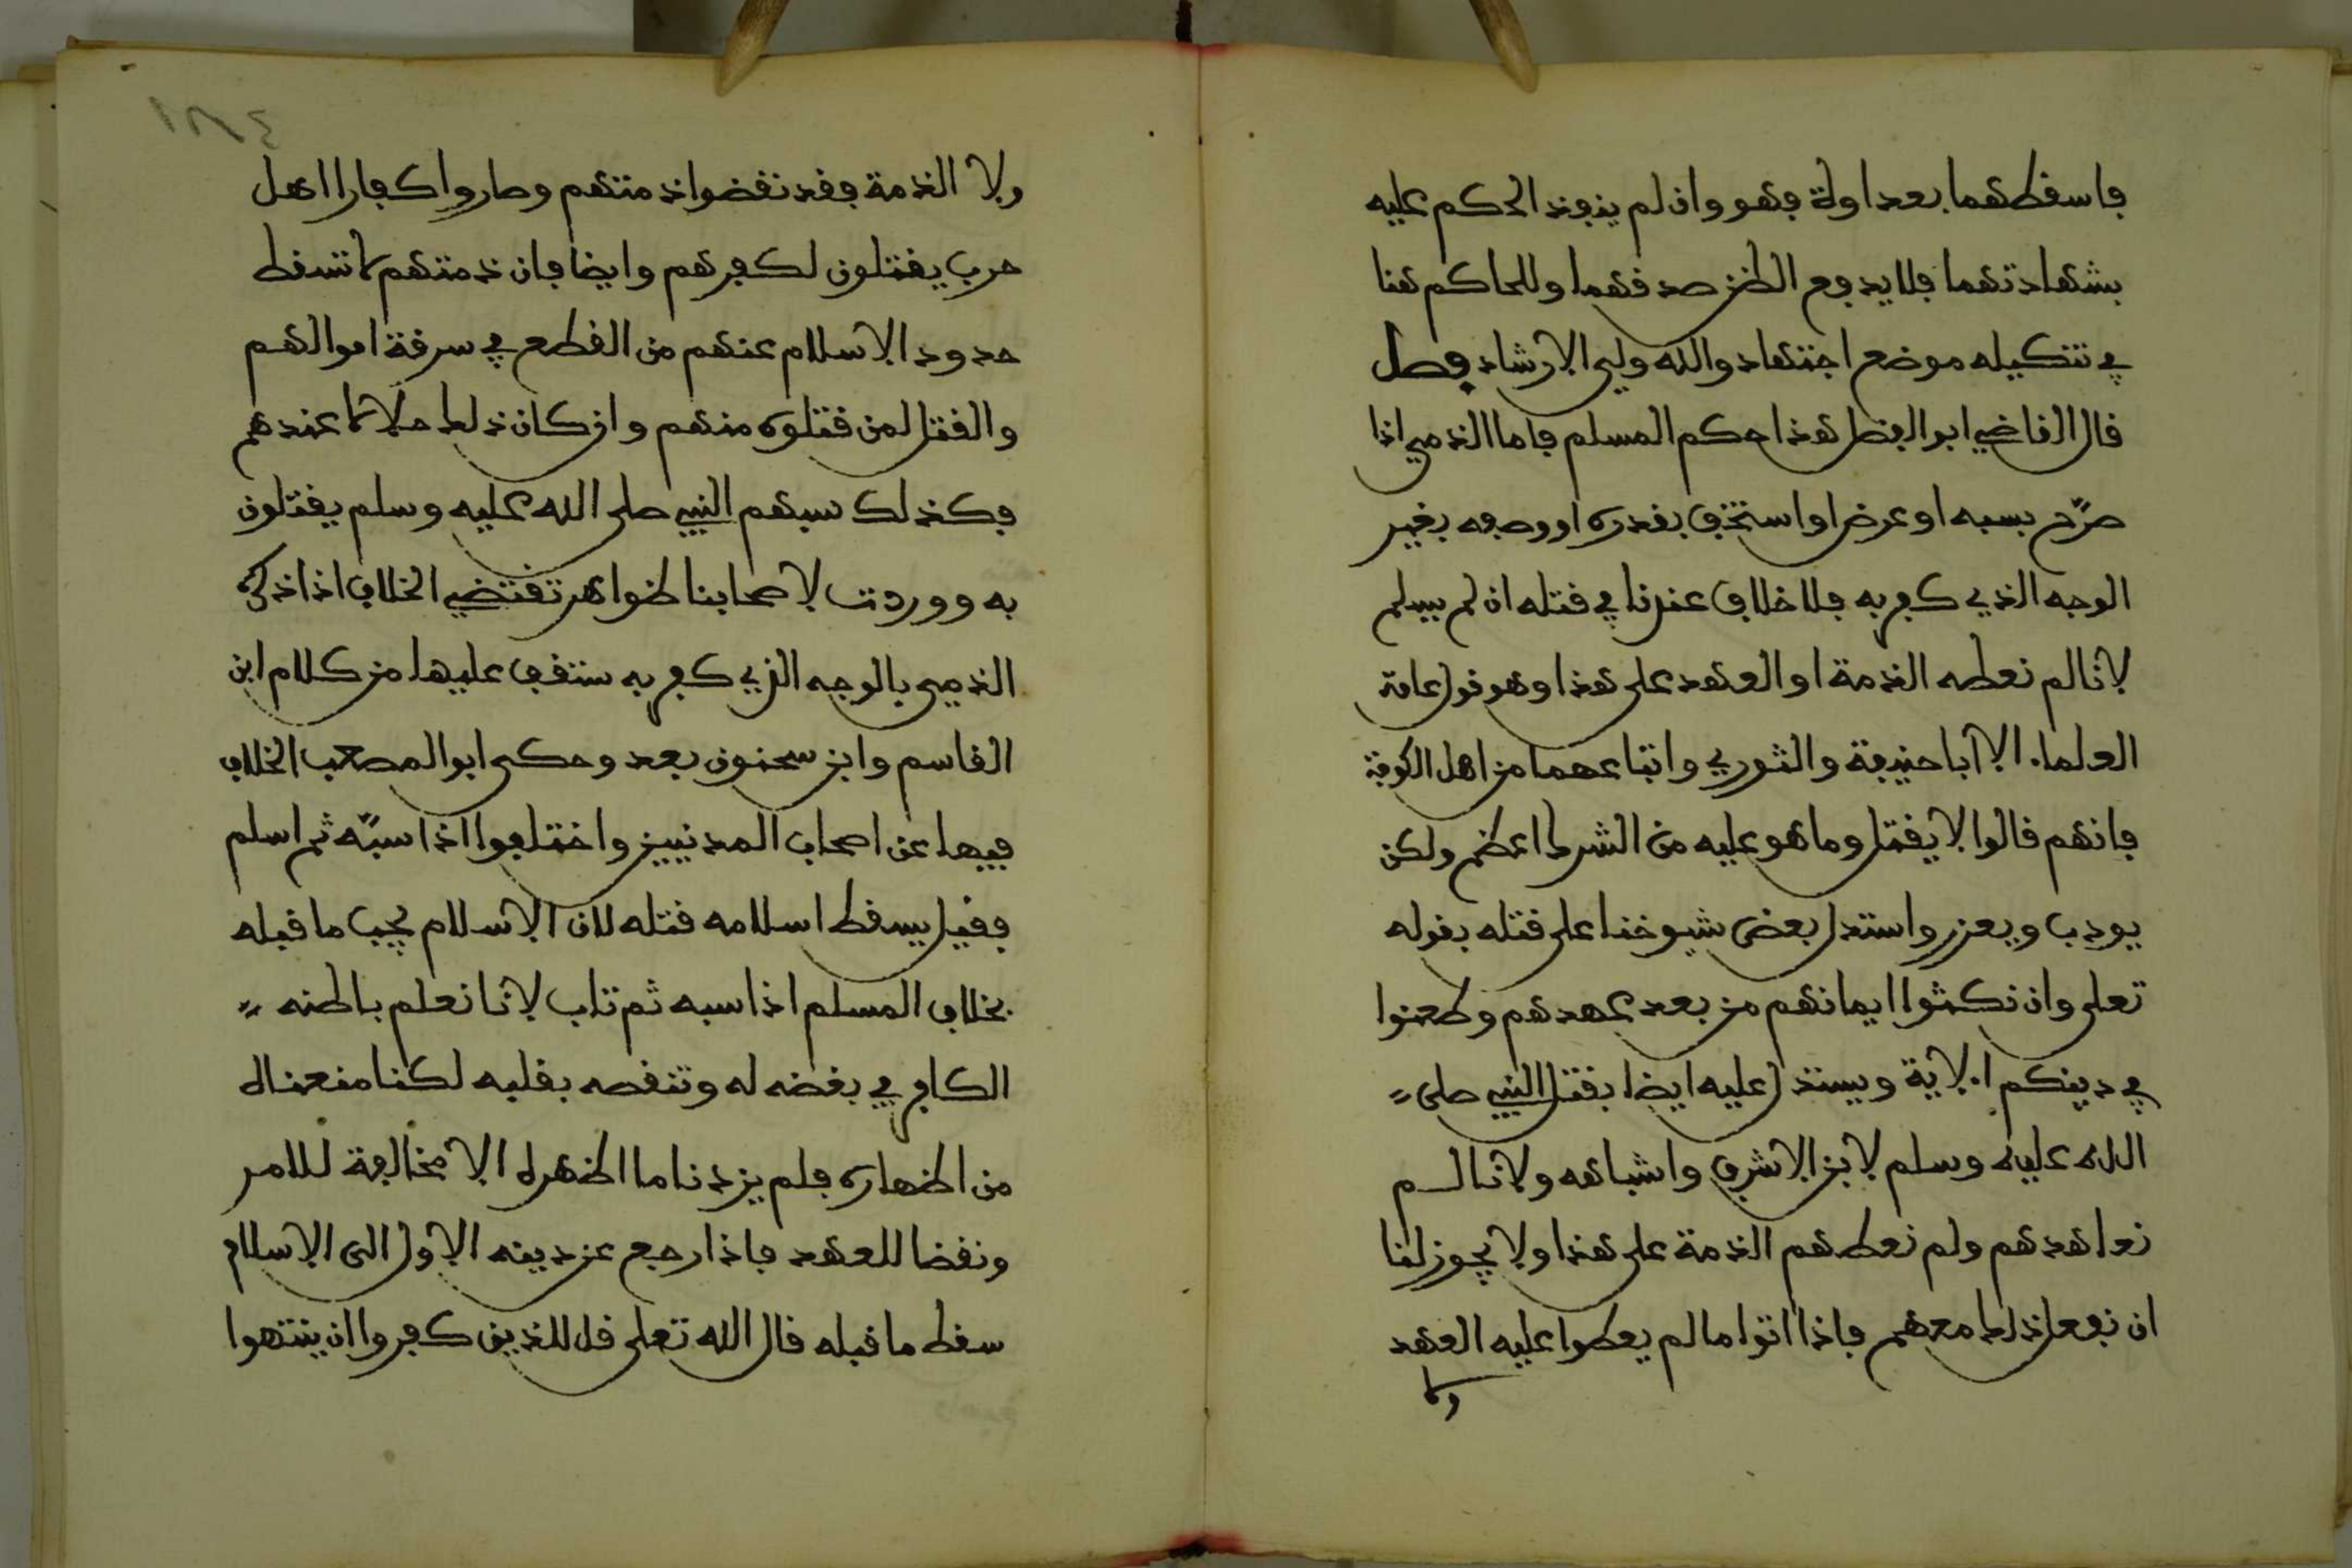 فاسقطهما بعداوة فهو وان لم ينفذ الحكم عليه
بشهادتهما فلا يدفع الظن صدقهما وللحاكم هنا
في تنكيله موضع اجتهاد والله ولي الارشاد فصل
قال القاضي ابو الفضل هذا حكم المسلم فاما الذمي اذا
صرّح بسبه او عرض او استخف بقدره او وصفه بغير
الوجه الذي كفر به فلا خلاف عندنا في قتله ان لم يسلم
لانا لم نعطه الذمة او العهد على هذا وهو قول عامة
العلماء الا ابا حنيفة والثوري واتباعهما من اهل الكوفة
فانهم قالوا لا يقتل وما هو عليه من الشرك اعظم ولكن
يودب ويعزر واستدل بعض شيوخنا على قتله بقوله
تعلى وان نكثوا ايمانهم من بعد عهدهم وطعنوا
في دينكم الاية ويستدل عليه ايضا بقتل النبي صلى
الله عليه وسلم لابن الاشرف واشباهه ولانا لم
نعاهدهم ولم نعطهم الذمة على هذا ولا يجوز لنا
ان نفعل ذلك معهم فاذا اتوا ما لم يعطوا عليه العهد
ولا
١٨٤
ولا الذمة فقد نقضوا ذمتهم وصاروا كفارا اهل
حرب يقتلون لكفرهم وايضا فان ذمتهم لا تسقط
حدود الاسلام عنهم من القطع في سرقة اموالهم
والقتل لمن قتلوه منهم وان كان ذلك حلالا عندهم
فكذلك سبهم النبي صلى الله عليه وسلم يقتلون
به ووردت لاصحابنا ظواهر تقتضي الخلاف اذا ذكره
الذمي بالوجه الذي كفر به ستقف عليها من كلام ابن
القاسم وابن سحنون بعد وحكى ابو المصعب الخلاف
فيها عن اصحاب المدنيين واختلفوا اذا سبّه ثم اسلم
فقيل يسقط اسلامه قتله لان الاسلام يجب ما قبله
بخلاف المسلم اذا سبه ثم تاب لانا نعلم باطنه
الكافر في بغضه له وتنقصه بقلبه لكنا منعناه
من اظهاره فلم يزدنا ما اظهره الا مخالفة للامر
ونقضا للعهد فاذا رجع عن دينه الاول الى الاسلام
سقط ما قبله قال الله تعلى قل للذين كفروا ان ينتهوا